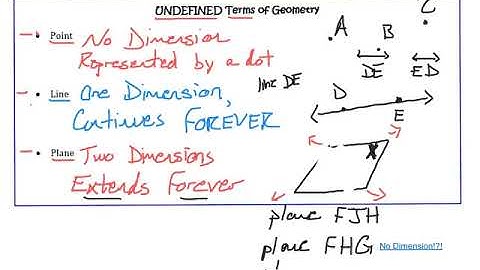 UNDEFINED Terms of Geometry
• Point No Dimension
Represented by a dot
• Line One Dimension,
Continues FOREVER
• Plane Two Dimensions
Extends Forever
A
B
C
DE
ED
line DE
D
E
plane FJH
plane FHG
No Dimension!?!